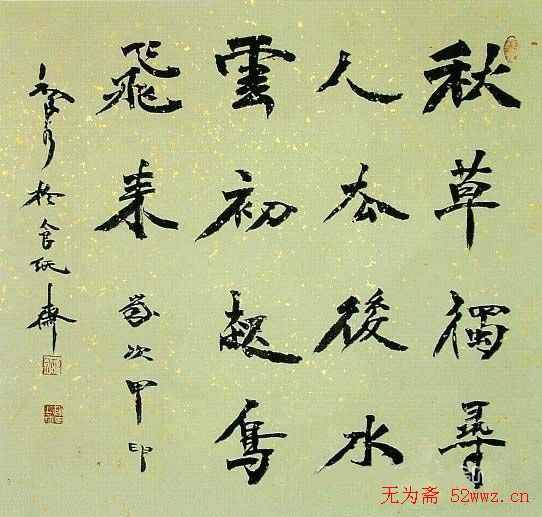 秋草獨尋
人去後水
雲初起鳥
飛来 歲次甲
於食砚齋
无为斋 52wwz.cn